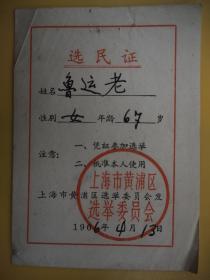 选民证
姓名 鲁运老
性别 女 年龄 67 岁
注意：
一、凭证参加选举
二、祇准本人使用
上海市黄浦区选举委员会发
上海市黄浦区
选举委员会
1966年4月13日